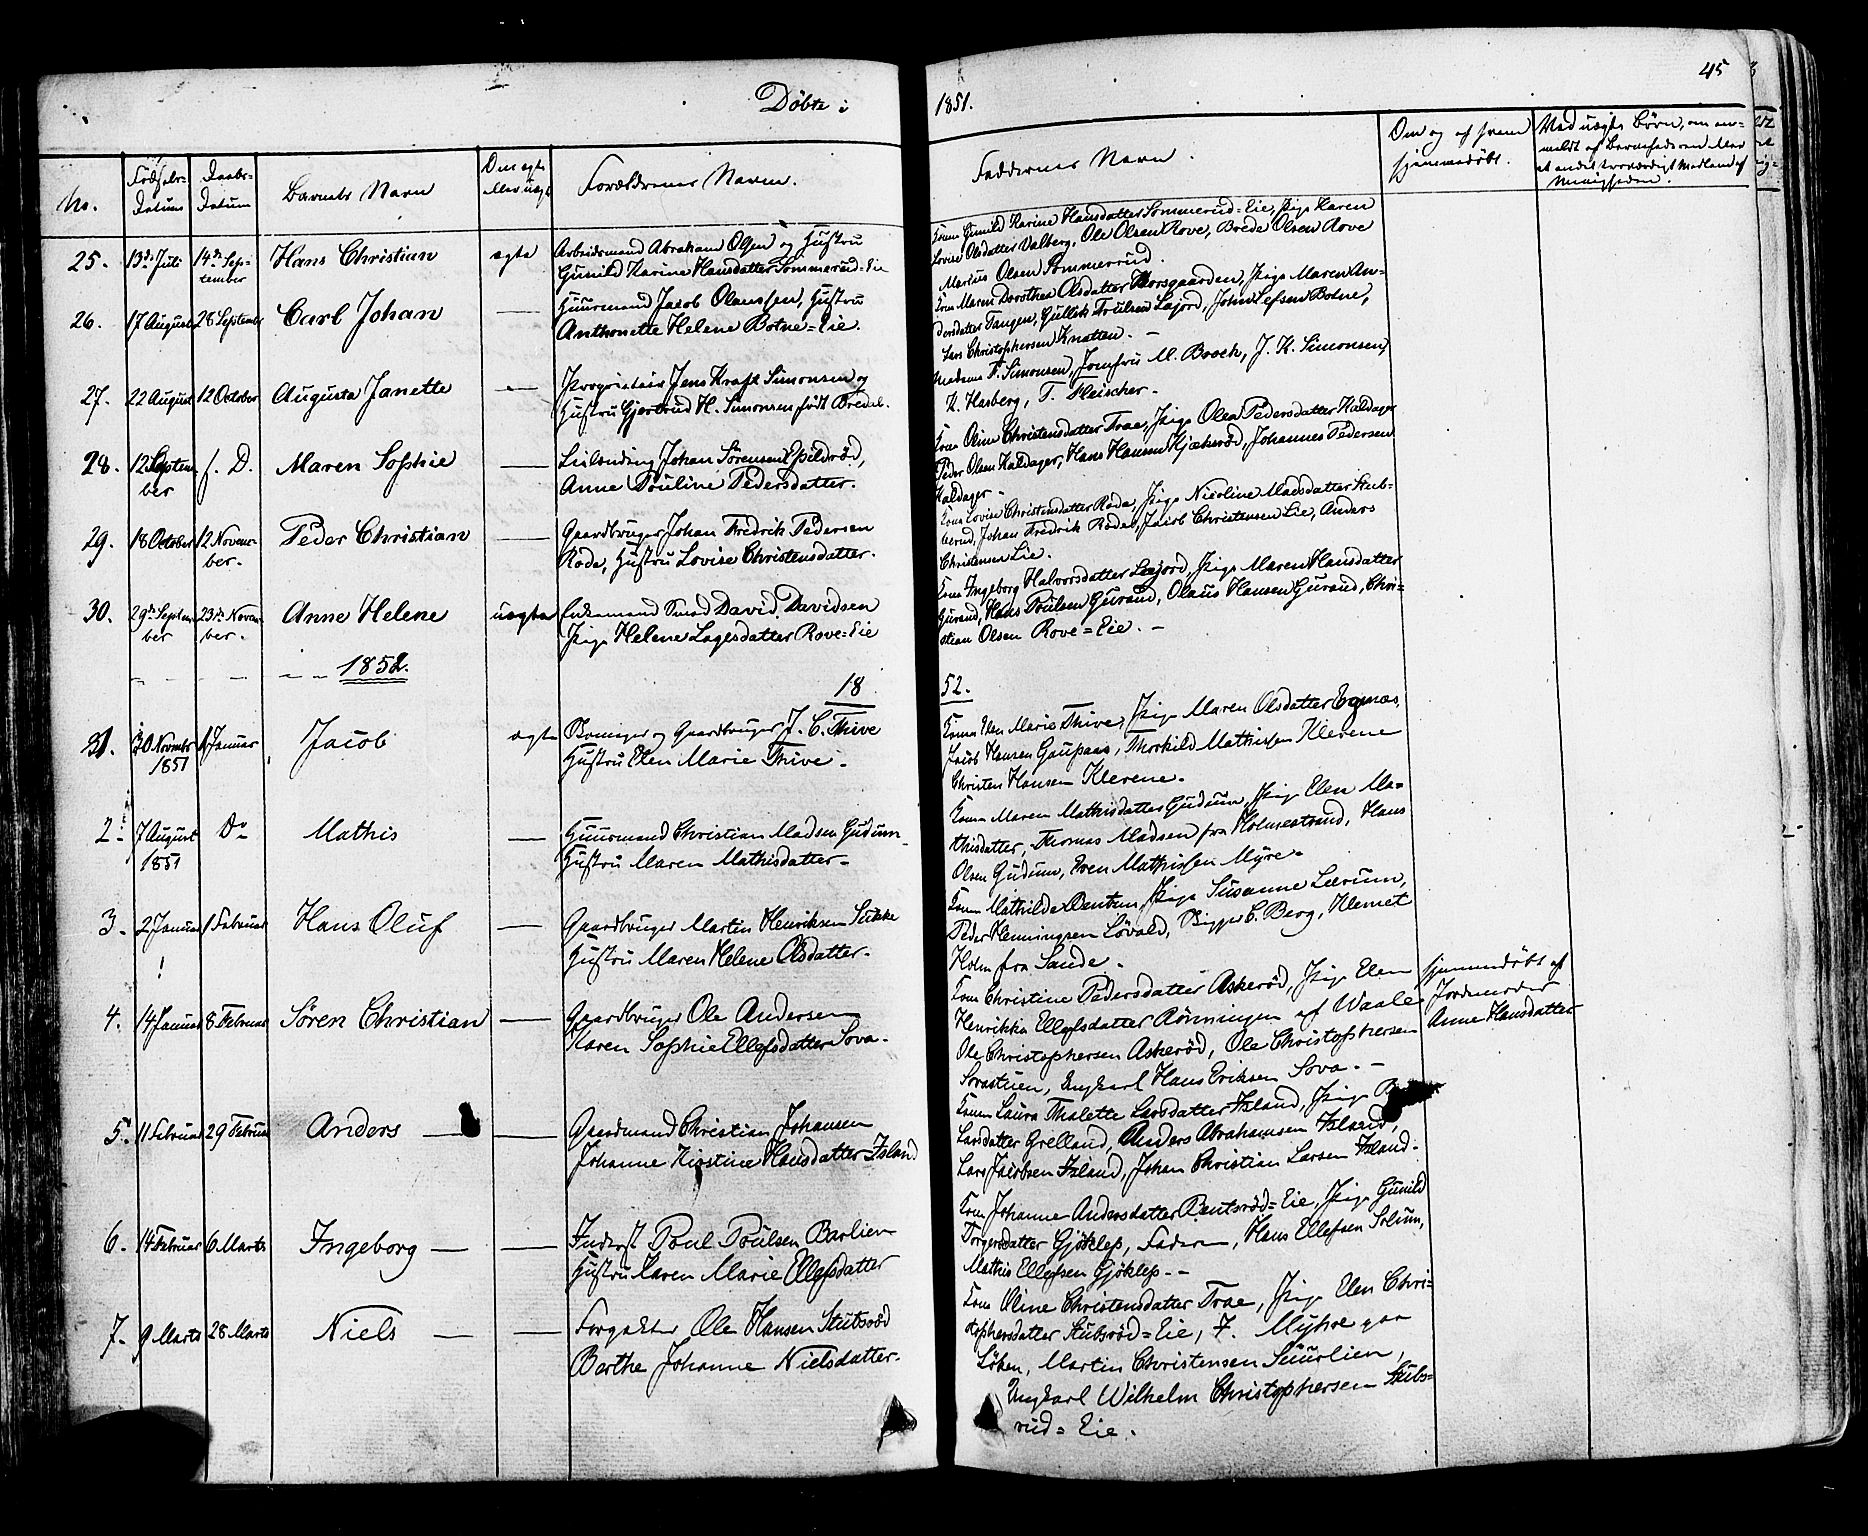 Döbte i
1851.
45
No.
Födsels-
Datum
Daabs-
Datum
Barnets Navn
Om ægte
eller uægte
Forældrenes Navne.
Faddernes Navn.
Om og af hvem
hjemmedöbt.
Ved uægte Börn, om an-
meldt af Barnefaderen eller
et andet troværdigt Medlem af
Menigheden.
25. 13de Juli 14de Sep-
tember
Hans Christian
ægte
Arbeidsmand Abraham Olsen og Hustru
Gunild Karine Hansdatter Sommerud=Eie
Kone Gunild Karine Hansdatter Sommerud=Eie, Pige Karen
Lovise Olsdatter Valberg, Ole Olsen Rove, Brede Olsen Rove
Marius Olsen Sommerud.
26. 17 August 28 September
Carl Johan
Huusmand Jacob Olaussen, Hustru
Anthonette Helene Botne=Eie.
Kone Maren Dorothea Olsdatter Korsgaarden, Pige Maren An-
dersdatter Tangen, Gullik Poulsen Lajord, John Lefsen Botne,
Lars Christophersen Knatten. –
27. 22 August 12 October
Augusta Janette
Proprietair Jens Kraft Simonsen og
Hustru Gjertrud H. Simonsen född Bredal.
Madame F. Simonsen, Jomfru M. Boeck, J. K. Simonsen,
K. Hasberg, T. Fleischer.
28. 12 Septem-
ber
f. D.
Maren Sophie
Leilænding Johan Sörensen Espildröd,
Anne Pouline Pedersdatter.
Kone Oline Christensdatter Trae, Pige Olea Pedersdatter Haldager
Peder Olsen Haldager, Hans Hansen Kjækeröd, Johannes Pedersen
Haldager.
29. 18 October 12 Novem-
ber.
Peder Christian
Gaardbruger Johan Fredrik Pedersen
Röde, Hustru Lovise Christensdatter.
Kone Lovise Christensdatter Röde, Pige Nicoline Madsdatter Stub-
berud, Johan Fredrik Röde, Jacob Christensen Lie, Anders
Christensen Lie.
30. 29de Septem-
ber
23de Novem-
ber.
Anne Helene
uægte
Enkemand Smed David Davidsen
Pige Helene Lagesdatter Rove=Eie
Kone Ingeborg Halvorsdatter Lajord, Pige Maren Hansdatter
Gurand, Hans Poulsen Gurand, Olaus Hansen Gurand, Chri-
stian Olsen Rove=Eie. –
1852.
18
52.
1. 30 Novembr
1851
1 Januar
Jacob
ægte
og Gaardbruger J. C. Thive
Hustru Elen Marie Thive.
Kone Elen Marie Thive, Pige Maren Olsdatter Egenæs,
Jacob Hansen Gaupaas, Thorkild Mathissen Klevene
Christen Hansen Klevene.
2. 7 August
1851
Do
Mathis
Huusmand Christian Madsen Gudum
Hustru Maren Mathisdatter.
Kone Maren Mathisdatter Gudum, Pige Elen Ma-
thisdatter, Thomas Madsen fra Holmestrand, Hans
Olsen Gudum, Even Mathissen Myre.
3. 2 Januar 1 Februar
Hans Oluf
Gaardbruger Martin Henriksen Sukke
Hustru Maren Helene Olsdatter.
Kone Mathilde Bentsen Pige Susanne Lærum,
Peder Henningsen Lövald, Bigger C. Berg, Klemet
Holm fra Sande.
4. 14 Januar 8 Februar
Sören Christian
Gaardbruger Ole Andersen
Karen Sophie Ellefsdatter Sova.
Kone Christine Pedersdatter Askeröd, Pige Elen
Henrikka Ellefsdatter Rönningen af Waale
Ole Christophersen Askeröd, Ole Christophersen
Sovastuen, Ungkarl Hans Eriksen Sova. –
hjemmedöbt af
Jordemoder
Anne Hansdatter
5. 11 Februar 29 Februar
Anders
Gaardmand Christian Johansen
Johanne Kirstine Hansdatter Island
Kone Laura Thalette Larsdatter Island, Pige
Larsdatter Grelland, Anders Abrahamsen Island,
Lars Jacobsen Island, Johan Christian Larsen Island.
6. 14 Februar 6 Marts
Ingeborg
Inderst Poul Poulsen Barlien
Hustru Karen Marie Ellefsdatter
Kone Johanne Andersdatter Bentsröd=Eie, Pige Gunild
Torgersdatter Gjöklep, Faderen, Hans Ellefsen Solum,
Mathis Ellefsen Gjöklep. –
7. 9 Marts 28 Marts
Niels
Forpakter Ole Hansen Stubsröd
Berthe Johanne Nielsdatter.
Kone Oline Christensdatter Trae, Pige Elen Chri-
stophersdatter Stubsröd=Eie, F. Myhre paa
Löken, Martin Christensen Suurlien,
Ungkarl Wilhelm Christophersen Stubs-
rud=Eie.